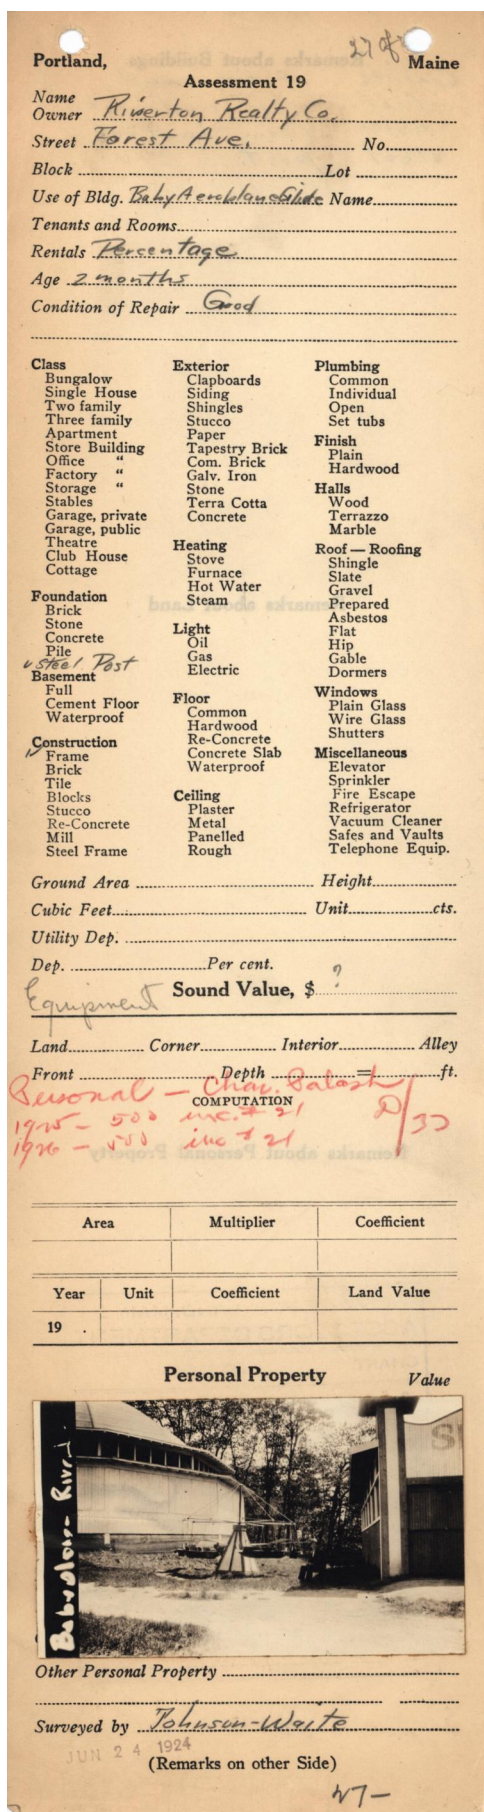 27 of
Portland, Maine
Assessment 19
Name
Owner Riverton Realty Co.
Street Forest Ave. No.
Block Lot
Use of Bldg. Baby Aeroplane Glide Name
Tenants and Rooms
Rentals Percentage
Age 2 months
Condition of Repair Good
Class
Bungalow
Single House
Two family
Three family
Apartment
Store Building
Office "
Factory "
Storage "
Stables
Garage, private
Garage, public
Theatre
Club House
Cottage
Foundation
Brick
Stone
Concrete
Pile
✓ Steel Post
Basement
Full
Cement Floor
Waterproof
Construction
✓ Frame
Brick
Tile
Blocks
Stucco
Re-Concrete
Mill
Steel Frame
Exterior
Clapboards
Siding
Shingles
Stucco
Paper
Tapestry Brick
Com. Brick
Galv. Iron
Stone
Terra Cotta
Concrete
Heating
Stove
Furnace
Hot Water
Steam
Light
Oil
Gas
Electric
Floor
Common
Hardwood
Re-Concrete
Concrete Slab
Waterproof
Ceiling
Plaster
Metal
Panelled
Rough
Plumbing
Common
Individual
Open
Set tubs
Finish
Plain
Hardwood
Halls
Wood
Terrazzo
Marble
Roof — Roofing
Shingle
Slate
Gravel
Prepared
Asbestos
Flat
Hip
Gable
Dormers
Windows
Plain Glass
Wire Glass
Shutters
Miscellaneous
Elevator
Sprinkler
Fire Escape
Refrigerator
Vacuum Cleaner
Safes and Vaults
Telephone Equip.
Ground Area Height
Cubic Feet Unit cts.
Utility Dep.
Dep. Per cent.
Equipment Sound Value, $ ?
Land Corner Interior Alley
Front Depth = ft.
Personal — Chas.
COMPUTATION
1925 — 500 inc. # 21
1926 — 500 inc # 21
D/32
Area Multiplier Coefficient
Year Unit Coefficient Land Value
19 .
Personal Property Value
Other Personal Property
Surveyed by Johnson-Waite
JUN 24 1924
(Remarks on other Side)
27-